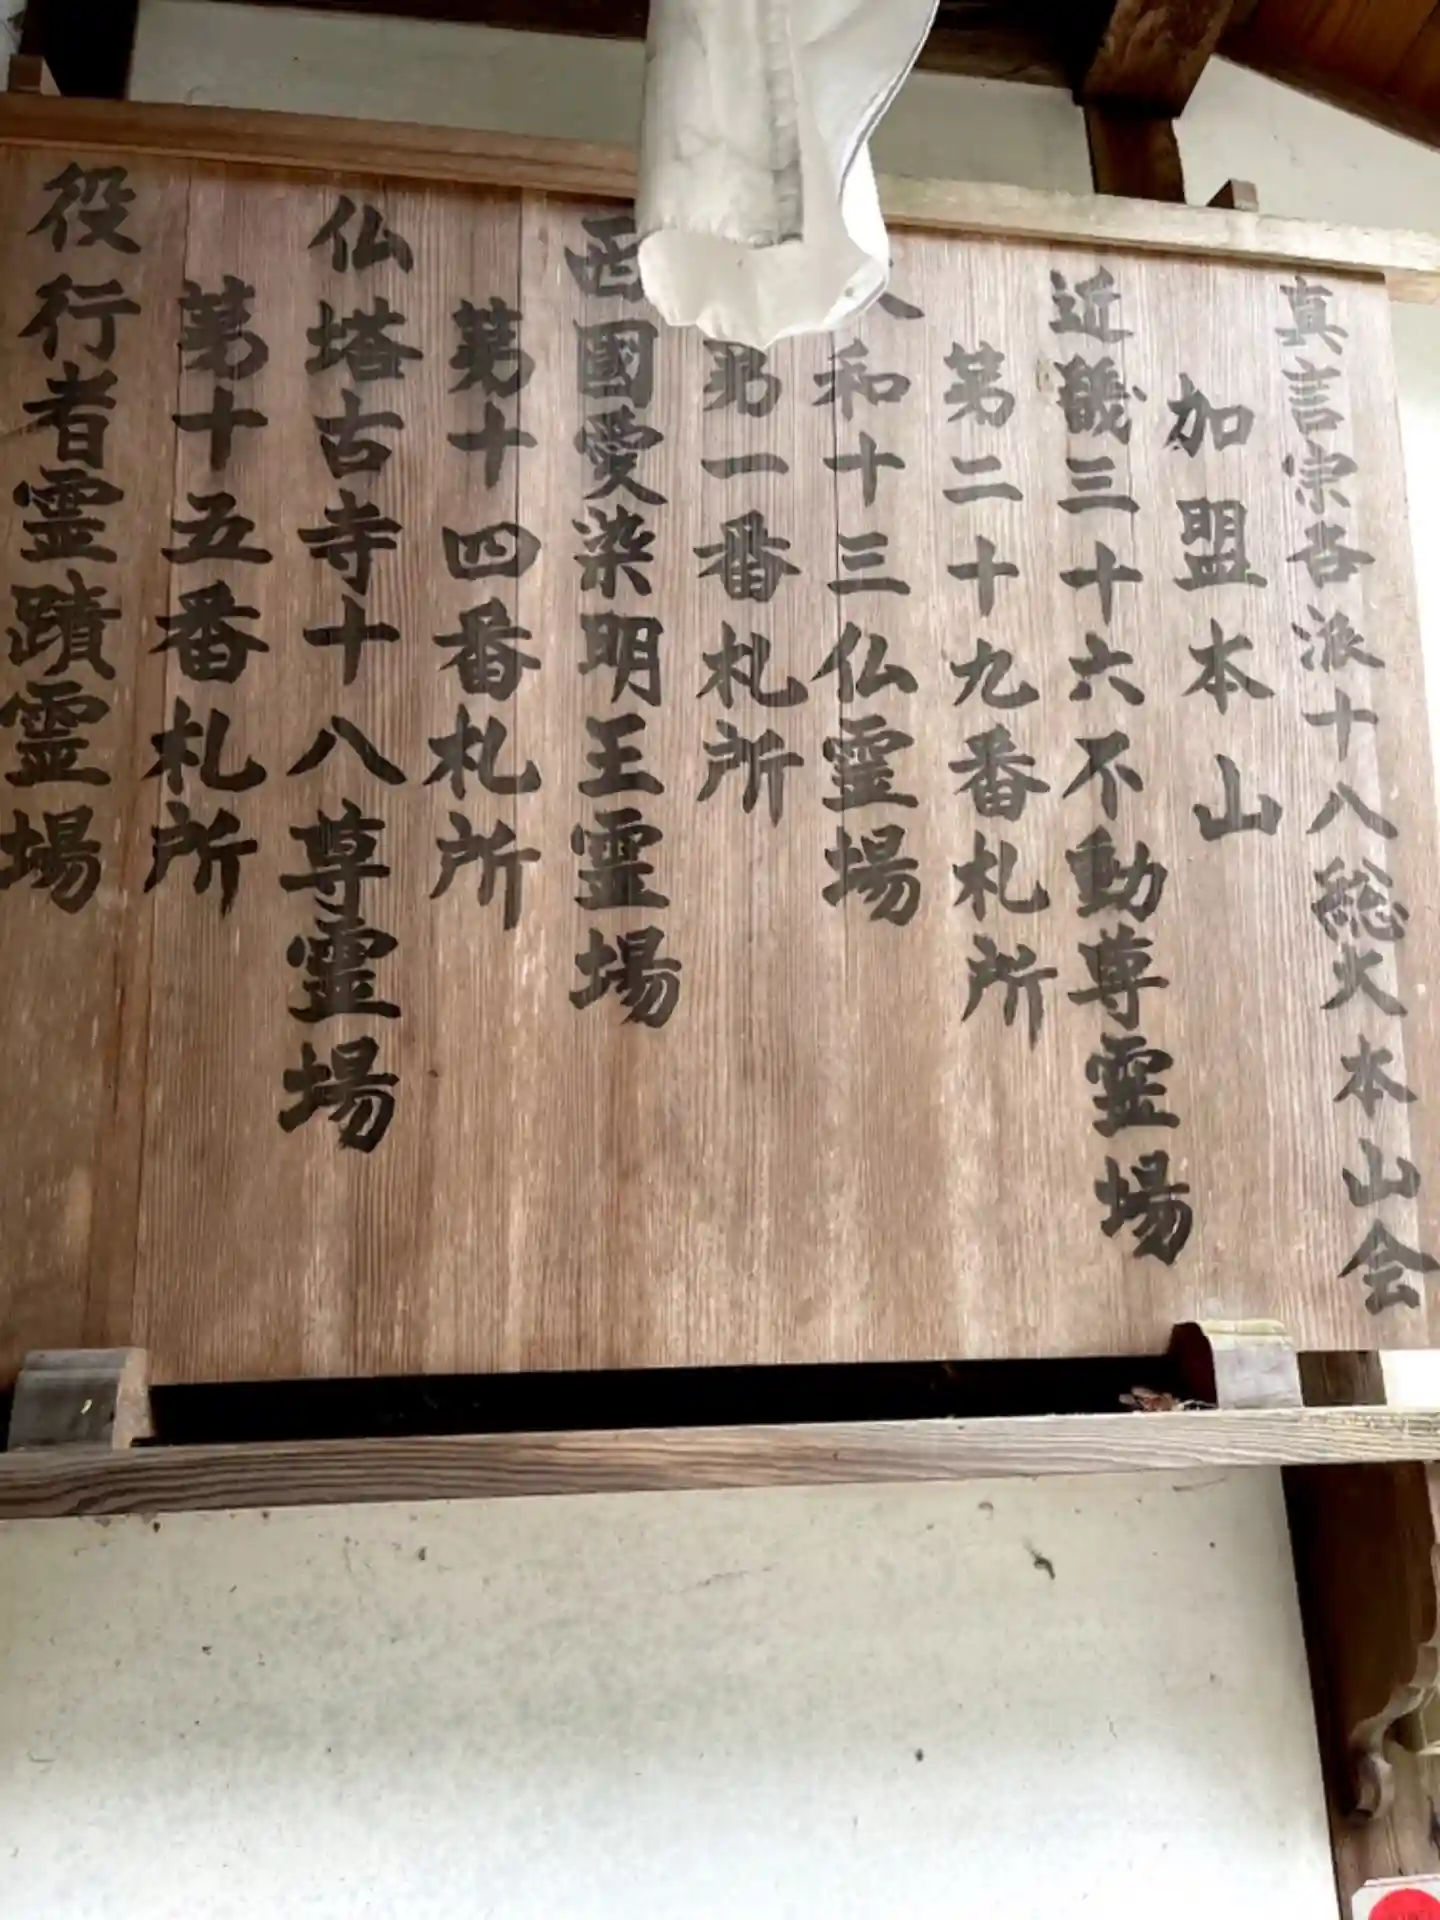 真言宗各派十八総大本山会
加盟本山
近畿三十六不動尊霊場
第二十九番札所
和十三仏霊場
第一番札所
西國愛染明王霊場
第十四番札所
仏塔古寺十八尊霊場
第十五番札所
役行者霊蹟霊場